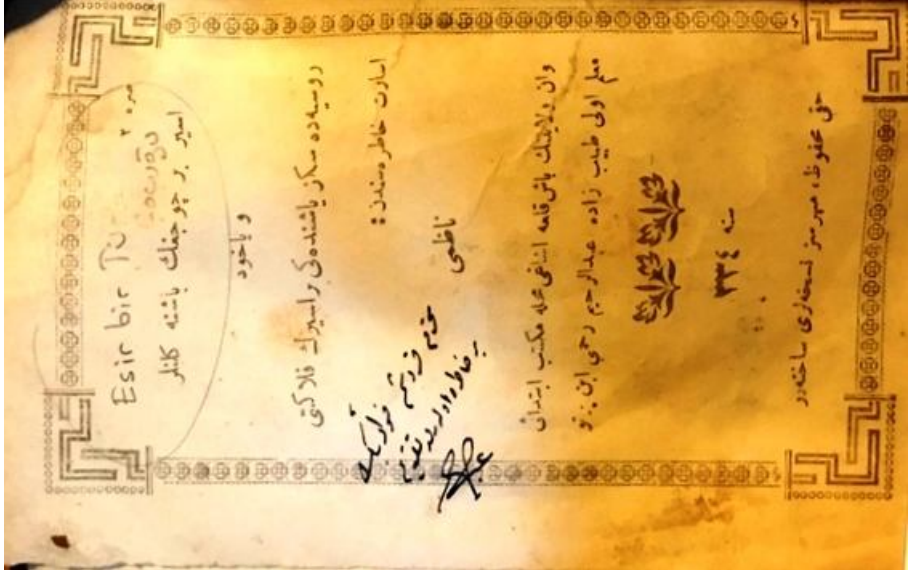 نمره ٢
Esir bir
اسير بر چوجغك باشنه كلنلر
و ياخود
روسيه‌ده سكز ياشنده‌كى بر اسيرك فلاكتى
اسارت خاطره‌سندن :
ناظمى
وان ولايتنك باش قلعه اشاغى محله مكتب ابتدائى
معلم اولى طبيب زاده عبدالرحيم رحمى ابن
سنه
٣٣٤
حقى محفوظ، مهرسز نسخه‌لرى ساخته‌در